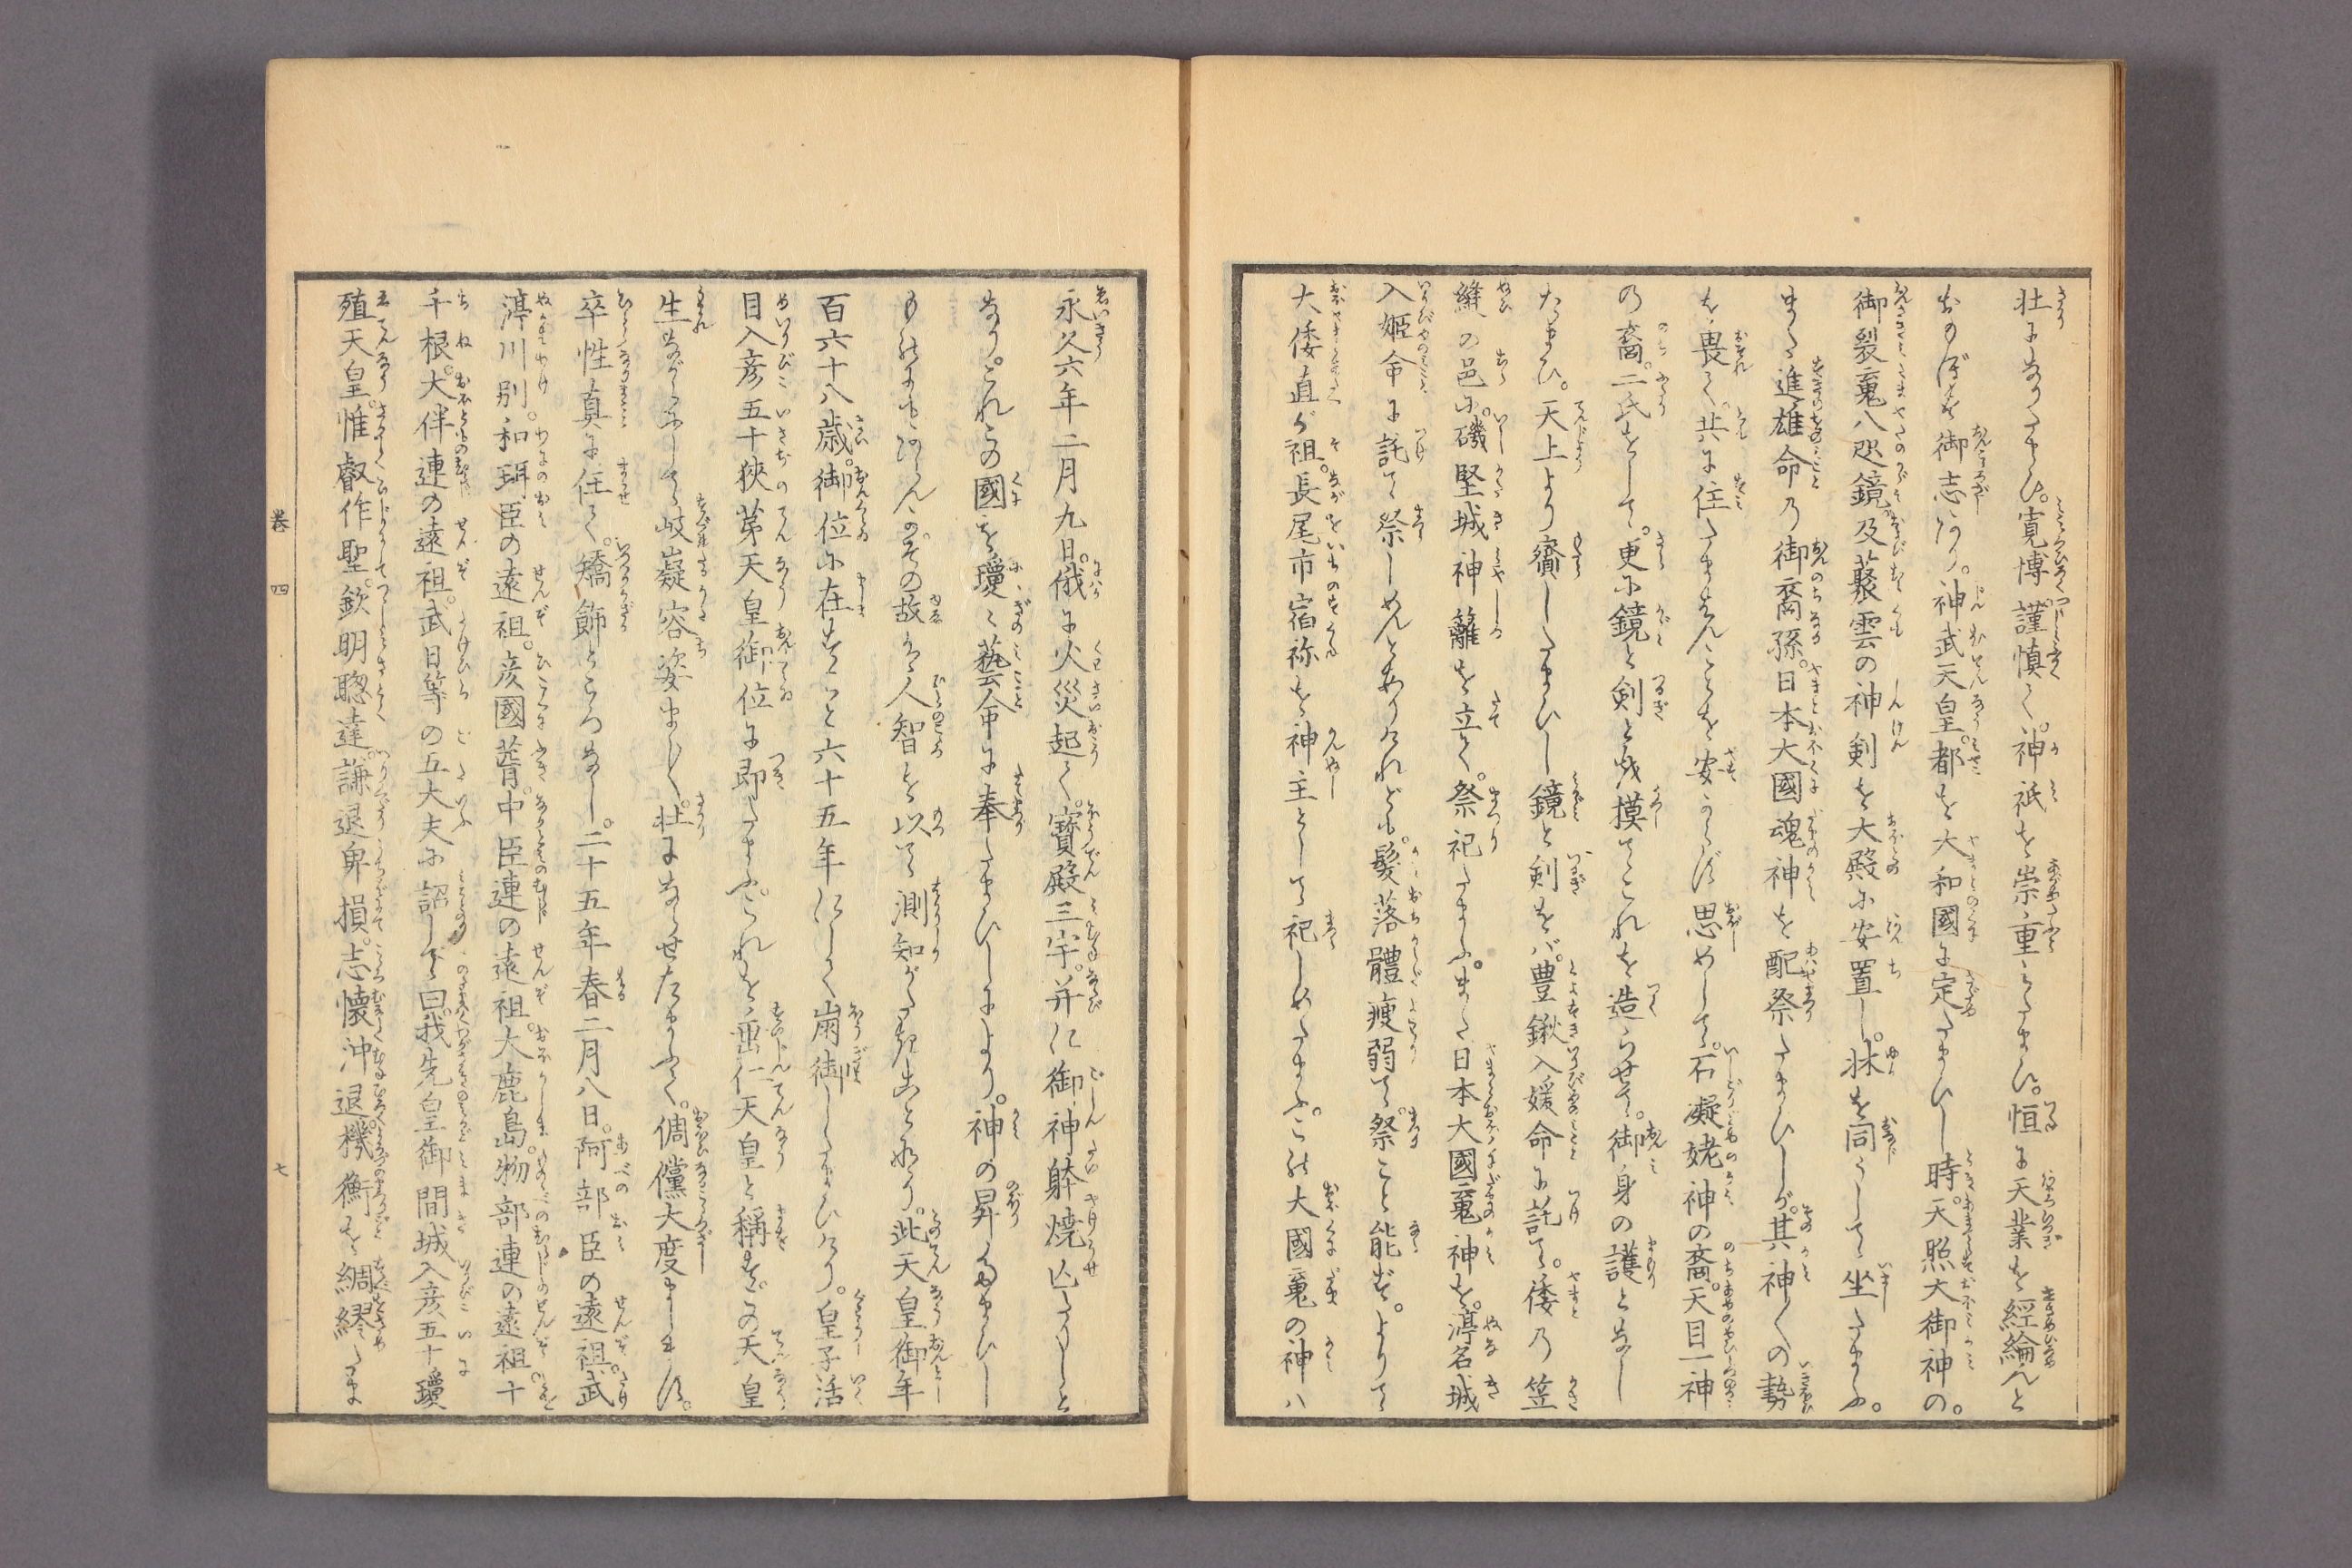 壮になりたまひ。寛博謹慎て。神祇を崇重たまひ。恒に天業を経綸んと
おもほす御志あり。神武天皇。都を大和國に定たまひし時。天照大御神の。
御裂䰟八咫鏡。及藂雲の神剣を大殿に安置し。牀を同うして坐たまふ。
また進雄命乃御裔孫。日本大國魂神を配祭たまひしが。其神〱の勢
を畏て。共に住たまはんことを安からず思めして。石凝姥神の裔。天目一神
の裔。二氏をして。更に鏡と剣とを摸てこれを造らせて。御身の護となし
たまひ。天上より齎したまひし鏡と剣をバ。豊鍬入媛命に託て。倭乃笠
縫の邑に。磯堅城神籬を立て。祭祀たまふ。また日本大國䰟神を。渟名城
入姫命に託て祭しめんとありけれども。髪落體痩弱て。祭こと能ず。よりて
大倭直が祖。長尾市宿祢を神主として祀しめたまふ。この大國䰟の神ハ
永久六年二月九日。俄に火災起て。寶殿三宇。并に御神躰焼亾たりしと
なり。これこの國を瓊々藝命に奉たまひしにより。神の昇らせたまひし
ものにもあらんか。その故は人智を以て測知がたきことなり。此天皇御年
百六十八歳。御位に在すこと六十五年にして崩御したまひけり。皇子活
目入彦五十狭茅天皇御位に即たまふ。これを垂仁天皇と稱す。この天皇
生ながらにして岐嶷容姿まし〱。壮にならせたまふて。倜儻大度まします。
卒性真に任て。矯飾ところなし。二十五年春二月八日。阿部臣の遠祖。武
渟川別。和珥臣の遠祖。彦國葺。中臣連の遠祖。大鹿島。物部連の遠祖。十
千根。大伴連の遠祖。武日等の五大夫に詔して曰。我先皇御間城入彦五十瓊
殖天皇。惟叡作聖。欽明聰達。謙退卑損。志懐沖退。機衡を綢繆たま
巻四
七